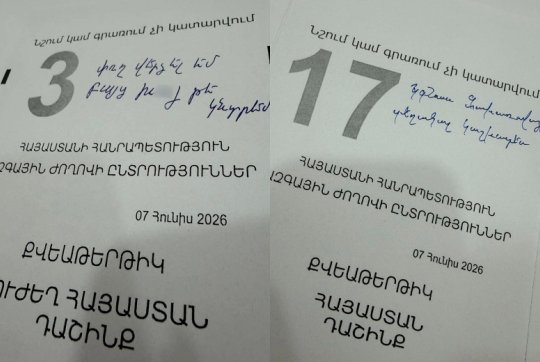 Նշում կամ գրառում չի կատարվում
3
փող վերցրել եմ
բայց թե
կնտրեմ
ՀԱՅԱՍՏԱՆԻ ՀԱՆՐԱՊԵՏՈՒԹՅՈՒՆ
ԶԳԱՅԻՆ ԺՈՂՈՎԻ ԸՆՏՐՈՒԹՅՈՒՆՆԵՐ
07 Հունիս 2026
ՔՎԵԱԹԵՐԹԻԿ
ՈՒԺԵՂ ՀԱՅԱՍՏԱՆ
ԴԱՇԻՆՔ
Նշում կամ գրառում չի կատարվում
17
ՀԱՅԱՍՏԱՆԻ ՀԱՆՐԱՊԵՏՈՒԹՅՈՒՆ
ԱԶԳԱՅԻՆ ԺՈՂՈՎԻ ԸՆՏՐՈՒԹՅՈՒՆՆԵՐ
07 Հունիս 2026
ՔՎԵԱԹԵՐԹԻԿ
ՀԱՅԱՍՏԱՆ
ԴԱՇԻՆՔ